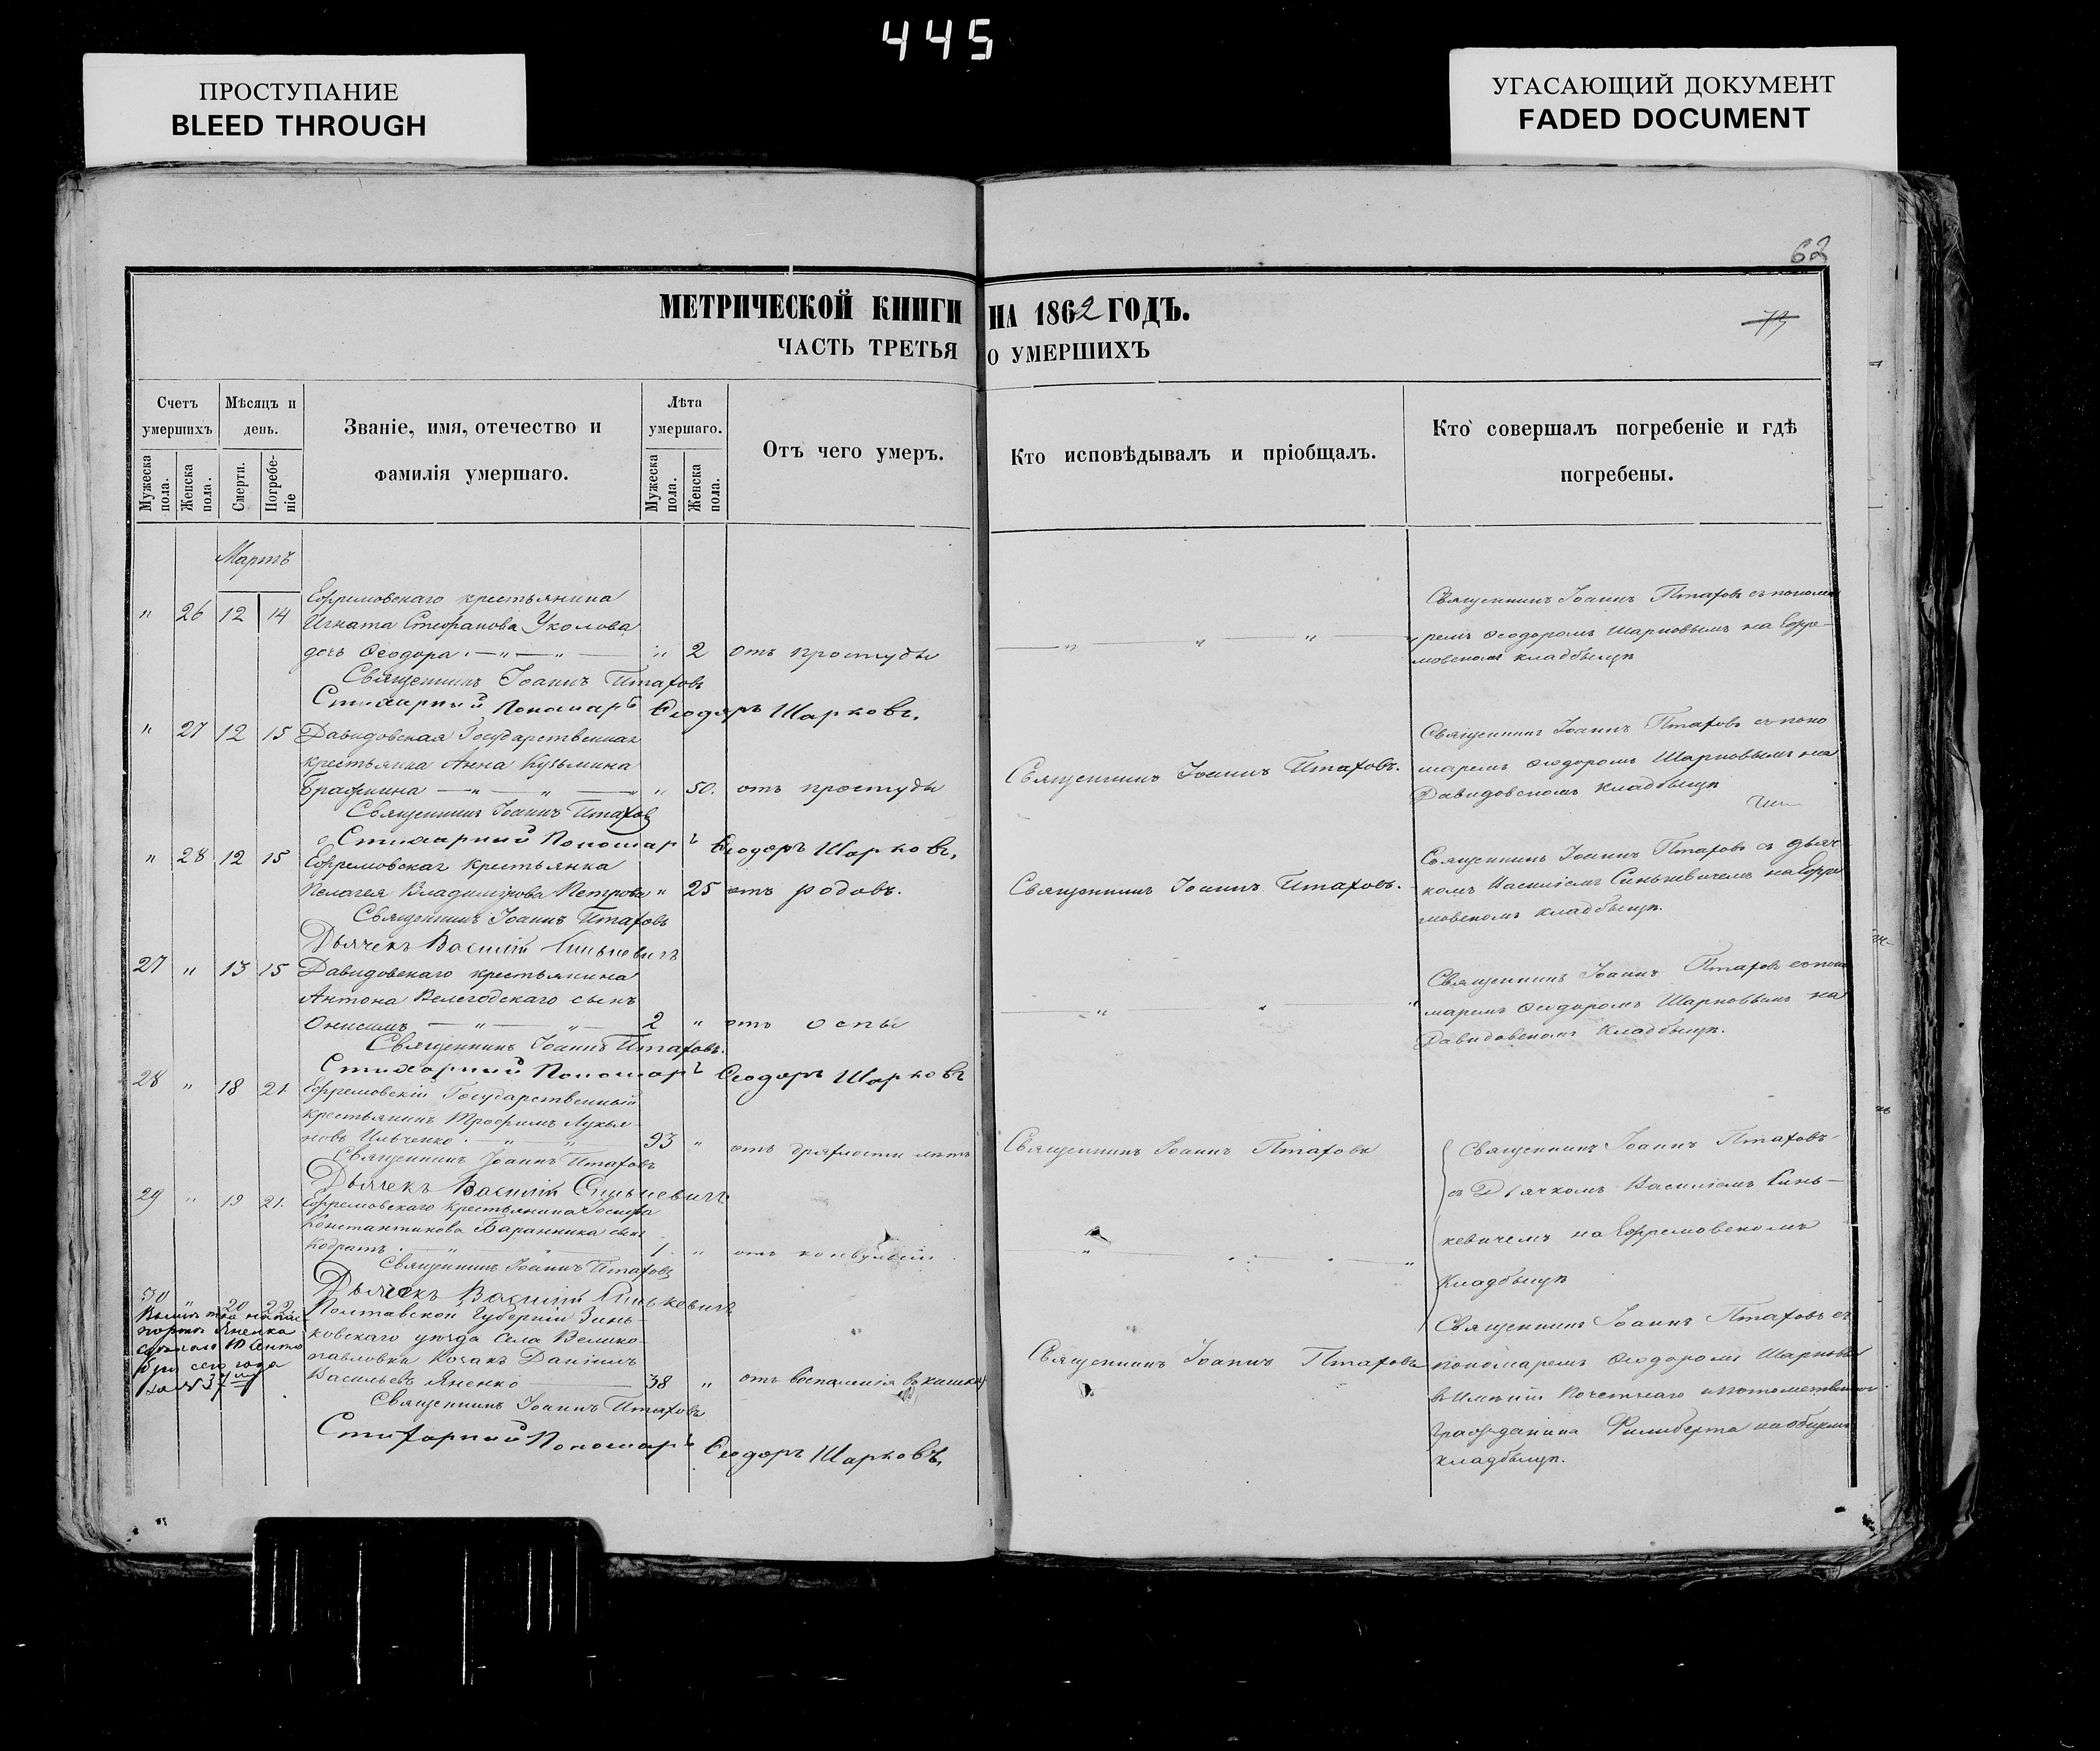 445
ПРОСТУПАНИЕ
BLEED THROUGH
УГАСАЮЩИЙ ДОКУМЕНТ
FADED DOCUMENT
62
МЕТРИЧЕСКОЙ КНИГИ НА 1862 ГОДЪ.
73
ЧАСТЬ ТРЕТЬЯ О УМЕРШИХЪ
Счетъ умершихъ
Мужеска пола.
Женска пола.
Мѣсяцъ и день.
Смерти.
Погребеніе
Званіе, имя, отечество и
фамилія умершаго.
Лѣта умершаго.
Мужеска пола.
Женска пола.
Отъ чего умеръ.
Кто исповѣдывалъ и пріобщалъ.
Кто совершалъ погребеніе и гдѣ
погребены.
Мартъ
" 26 12 14 Ефремовскаго крестьянина
Игната Стефанова Уколова
дочь Ѳеодора " " " 2 отъ простуды
Священникъ Іоаннъ Птаховъ
Стихарный Пономарь Ѳеодоръ Шарковъ.
Священникъ Іоаннъ Птаховъ съ понома
ремъ Ѳеодоромъ Шарковымъ на Ефре-
мовскомъ кладбищѣ
" 27 12 15 Давидовская Государственная
крестьянка Анна Кузьмина
" " " 50. отъ простуды
Священникъ Іоаннъ Птаховъ
Стихарный Пономарь Ѳеодоръ Шарковъ.
Священникъ Іоаннъ Птаховъ.
Священникъ Іоаннъ Птаховъ съ поно
маремъ Ѳеодоромъ Шарковымъ на
Давидовскомъ кладбищѣ
" 28 12 15 Ефремовская крестьянка
Пелагея Владимірова Петрова " 25 отъ родовъ.
Священникъ Іоаннъ Птаховъ
Дьячекъ Василій Синькевичъ
Священникъ Іоаннъ Птаховъ.
Священникъ Іоаннъ Птаховъ съ дьяч
комъ Василіемъ Синькевичемъ на Ефре
мовскомъ кладбищѣ.
27 " 13 15 Давидовскаго крестьянина
Антона Велегодскаго сынъ
Онисимъ " " 2 " отъ оспы
Священникъ Іоаннъ Птаховъ.
Стихарный Пономарь Ѳеодоръ Шарковъ
Священникъ Іоаннъ Птаховъ съ поно
маремъ Ѳеодоромъ Шарковымъ на
Давидовскомъ кладбищѣ.
28 " 18 21 Ефремовскій Государственный
крестьянинъ Трофимъ Лукья
новъ Ильченко " " 93 " отъ дряхлости лѣтъ
Священникъ Іоаннъ Птаховъ
Дьячекъ Василій Синькевичъ
Священникъ Іоаннъ Птаховъ
Священникъ Іоаннъ Птаховъ
съ Дьячкомъ Василіемъ Синь-
кевичемъ на Ефремовскомъ
кладбищѣ
29 " 19 21. Ефремовскаго крестьянина Іосифа
Константинова Баранника сынъ
Кодратъ " " 1 " отъ конвульсіи.
Священникъ Іоаннъ Птаховъ
Дьячекъ Василій Синькевичъ
30 " 20 22 Полтавской Губерніи Зинь-
ковскаго уѣзда Села Велико-
павловки Козакъ Даніилъ
Васильевъ Яненко 38 " отъ воспаленія въ кишкахъ
Священникъ Іоаннъ Птаховъ
Стихарный Пономарь Ѳеодоръ Шарковъ.
Яненка
сего года
Священникъ Іоаннъ Птаховъ
Священникъ Іоаннъ Птаховъ съ
пономаремъ Ѳеодоромъ Шарковымъ
въ Имѣніи Почетнаго
гражданина Филиберта на общемъ
кладбищѣ.